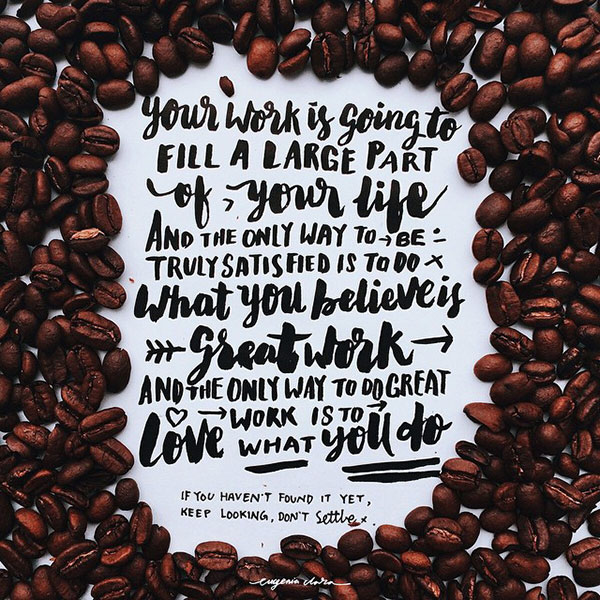 Your work is going to
FILL A LARGE PART
of your life
AND THE ONLY WAY TO BE
TRULY SATISFIED IS TO DO
What you believe is
Great work
AND THE ONLY WAY TO DO GREAT
WORK IS TO
LOVE WHAT you do
IF YOU HAVEN'T FOUND IT YET,
KEEP LOOKING, DON'T Settle.
eugenia clara